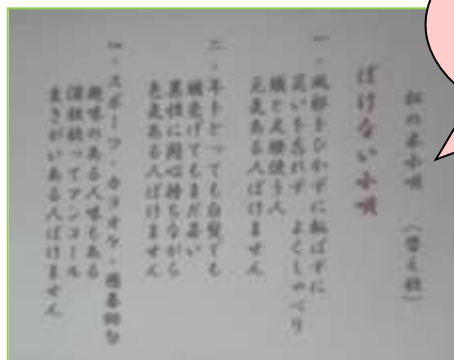 松の木小唄 (替え歌)
ぼけない小唄
一、風邪をひかずに転ばずに
笑いを忘れず よくしゃべり
頭と足腰使う人
元気ある人ぼけません
二、年をとっても白髪でも
頭禿げてもまだ若い
異性に関心持ちながら
色気ある人ぼけません
三、スポーツ・カラオケ・囲碁俳句
趣味のある人味もある
演歌唄ってアンコール
生きがいある人ぼけません